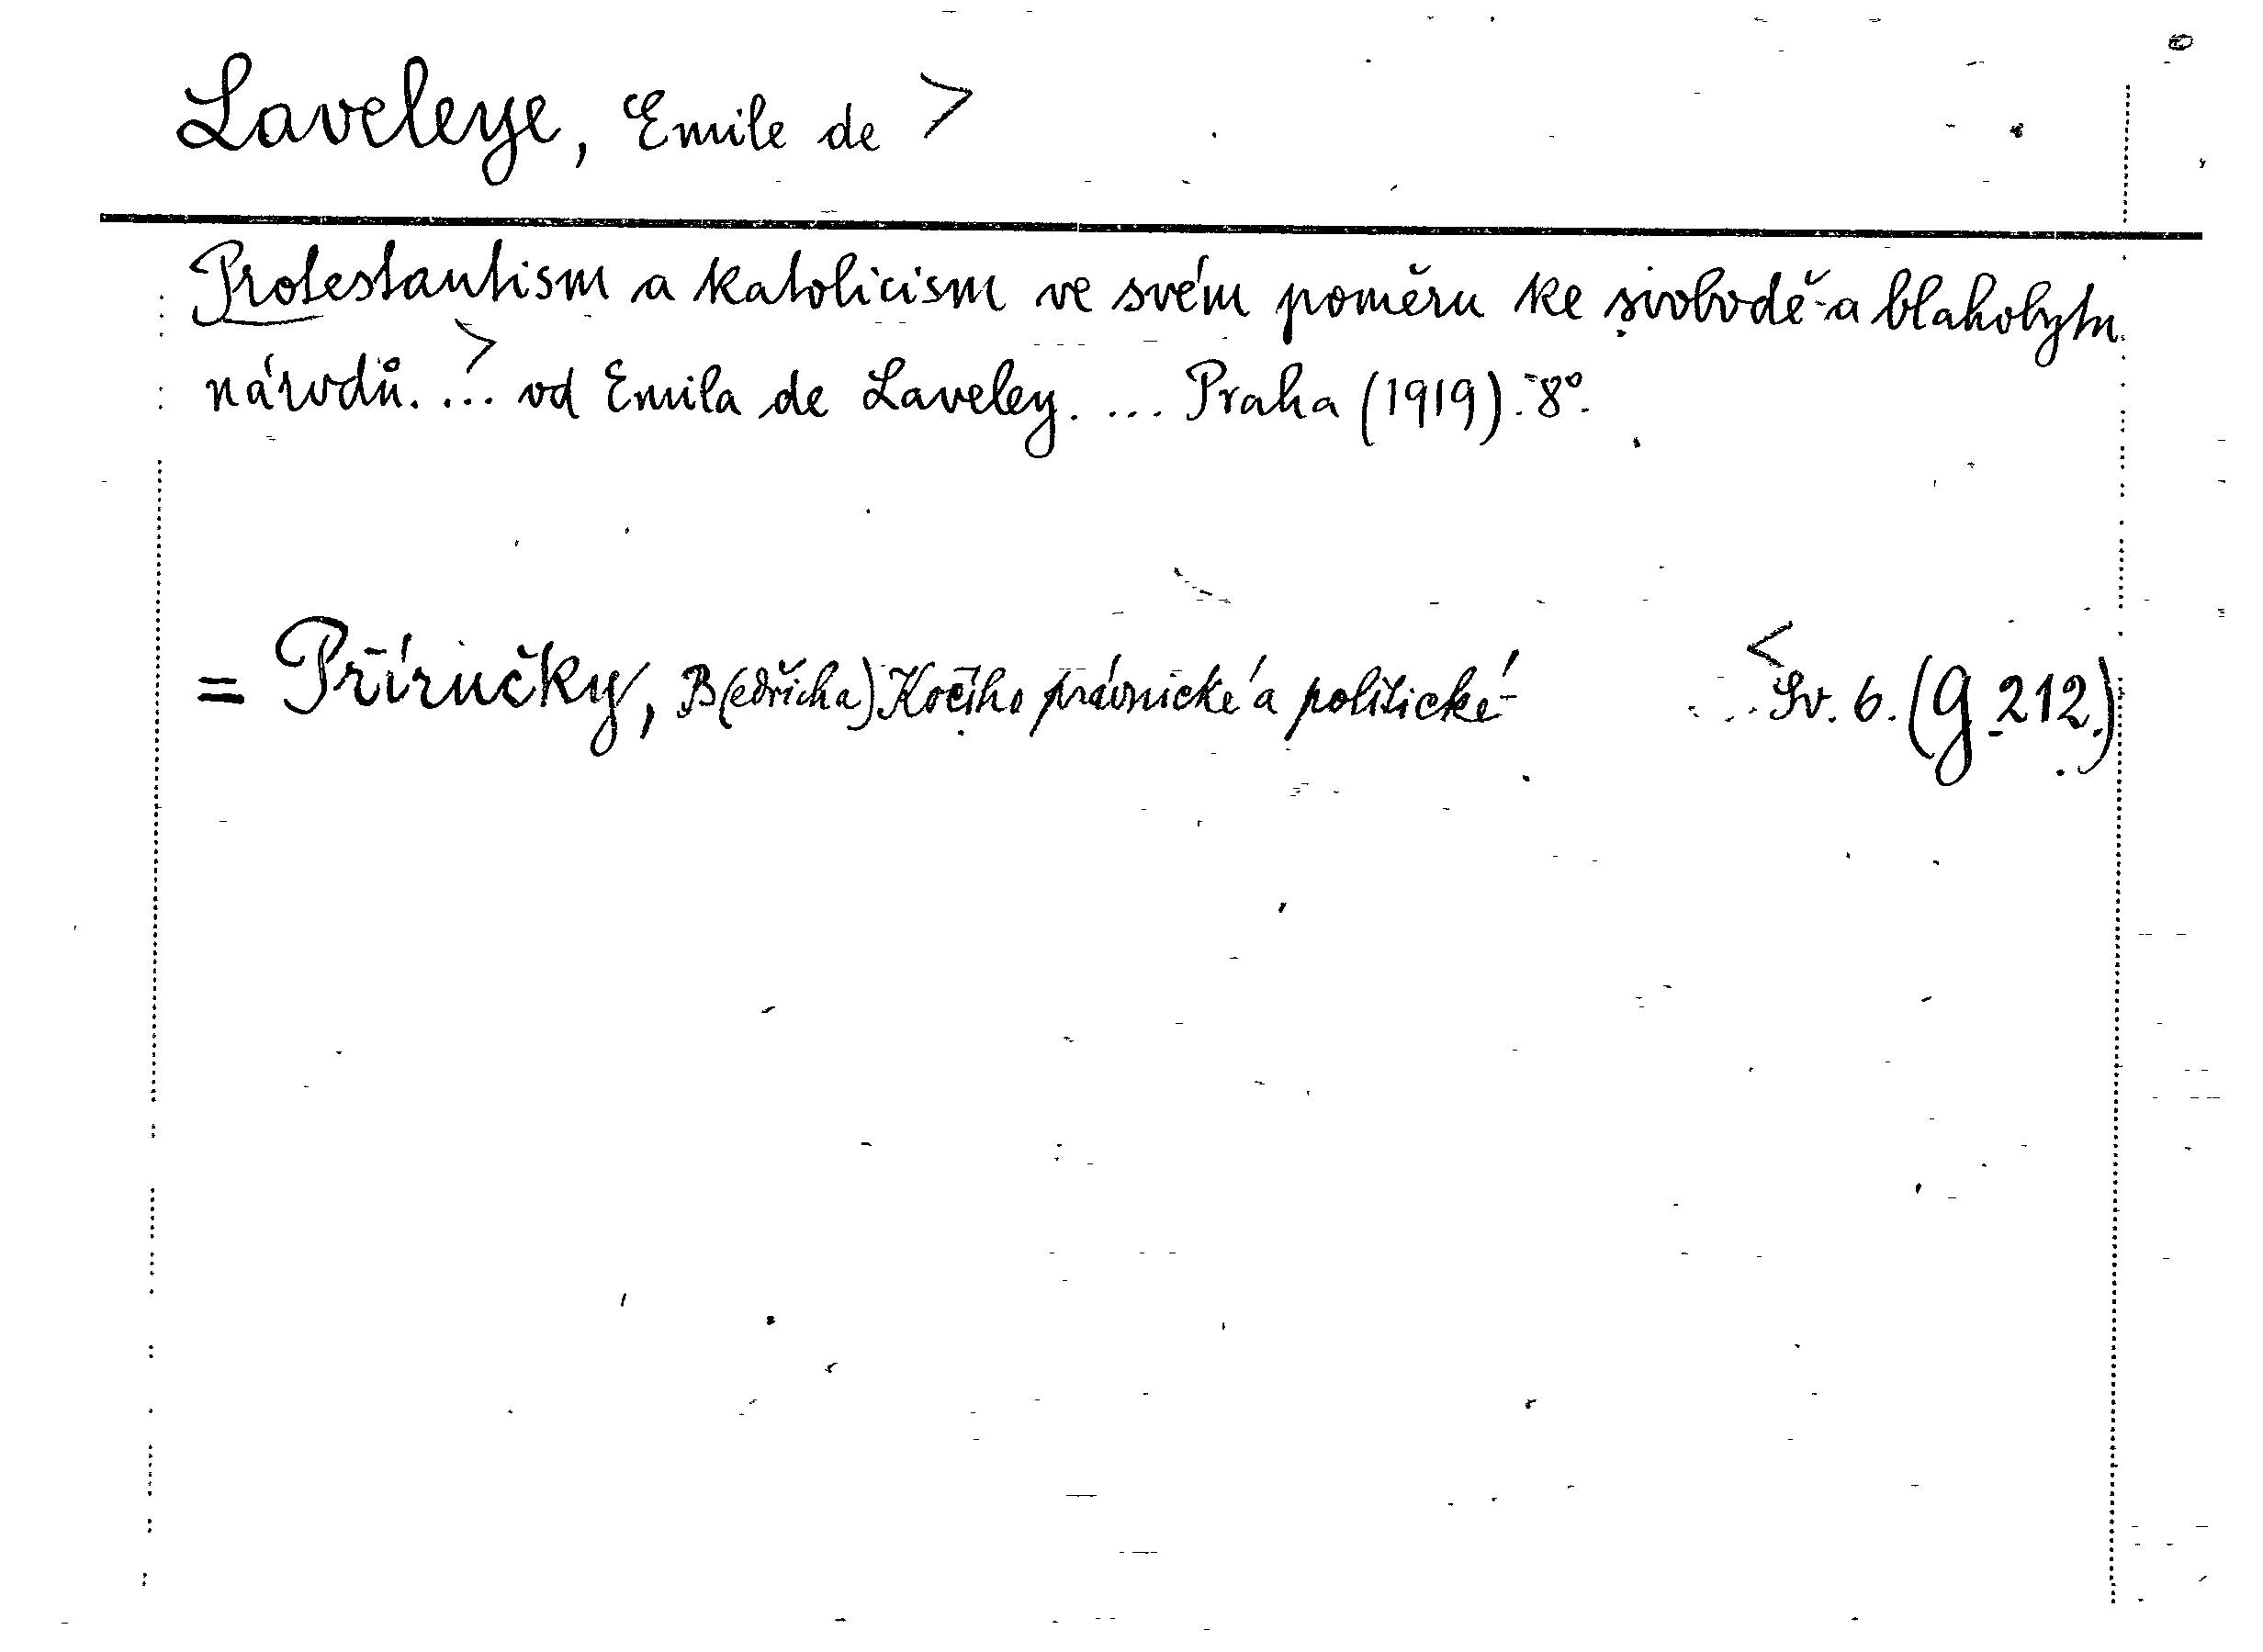 Laveleye, Emile de >
Protestantism a katolicism ve svém poměru ke svobodě a blahobytu
národů. ...> od Emila de Laveley. ... Praha (1919). 8°.
= Příručky, B(edřicha) Kočího právnické a politické ... < Sv. 6. (G 212.)